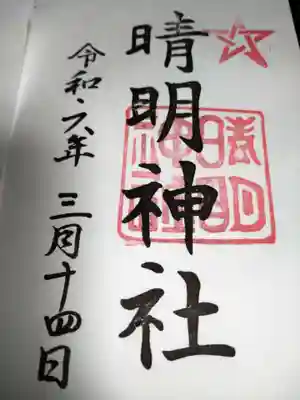 晴明神社
令和・六年 三月十四日
晴明
神社